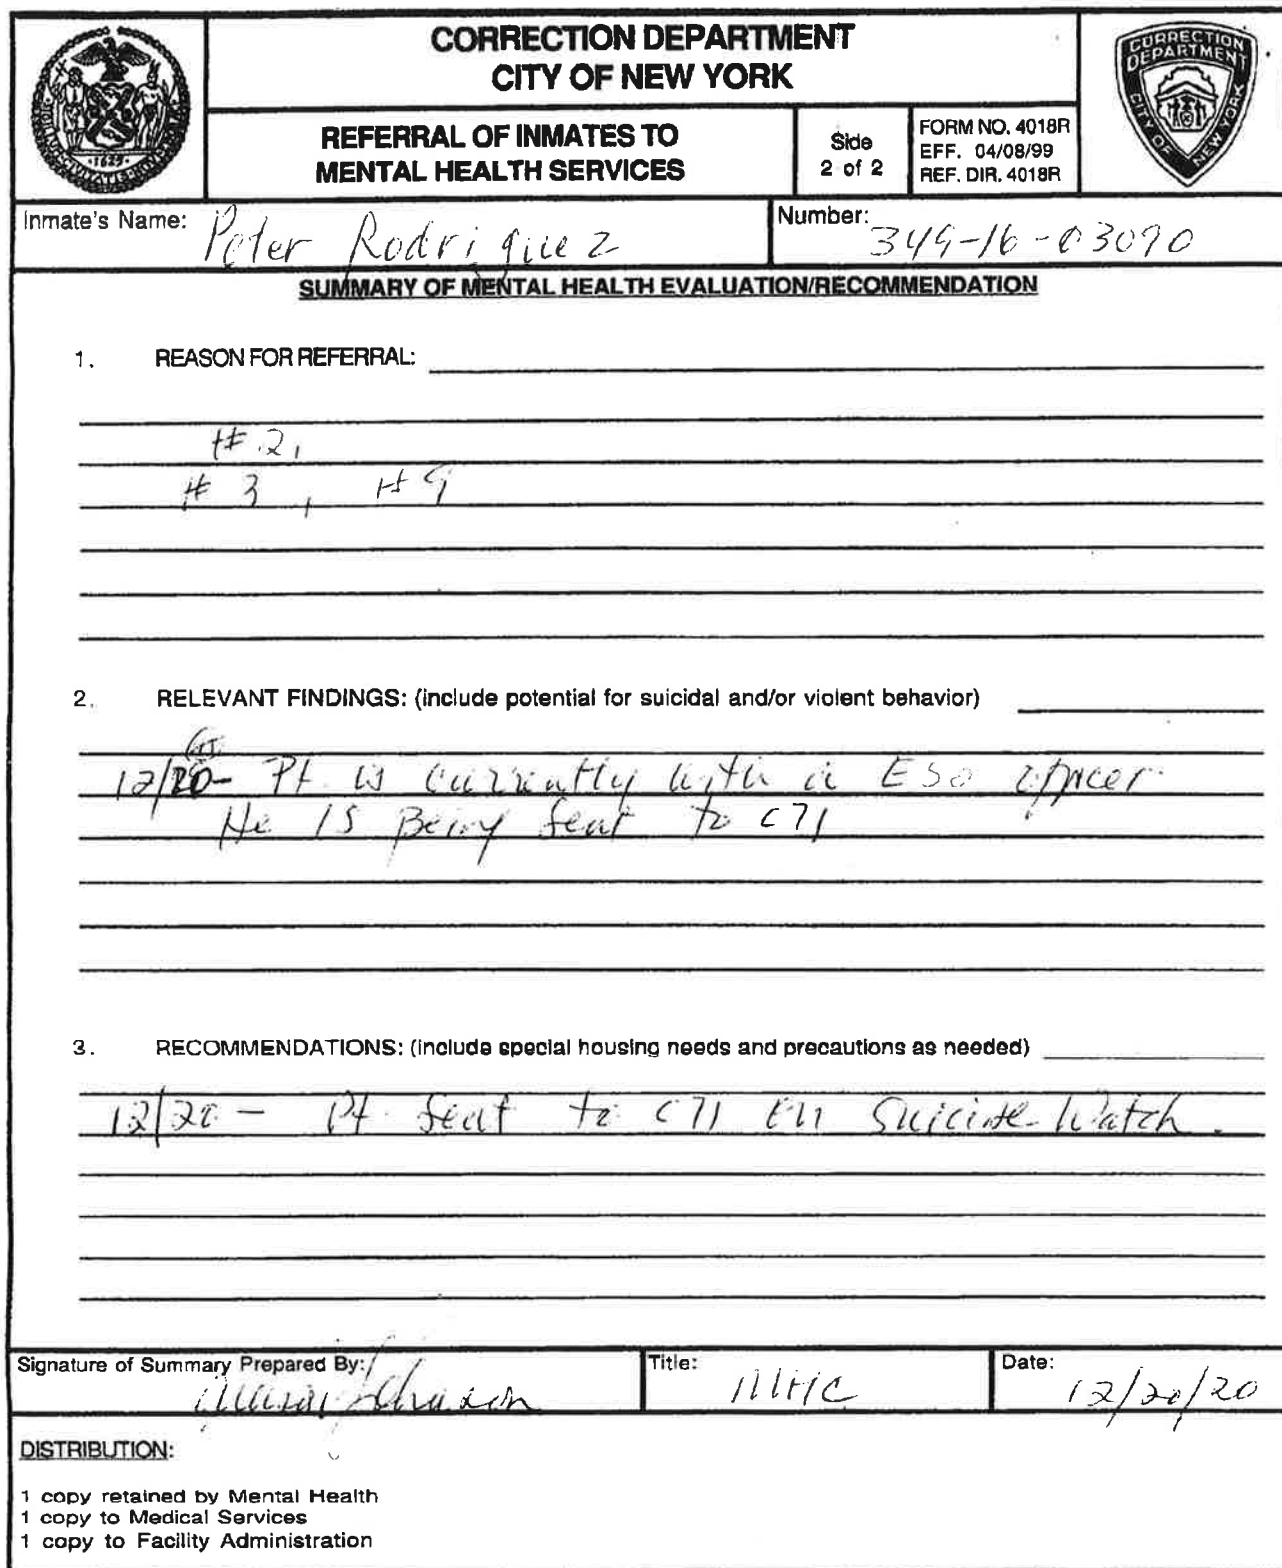 CORRECTION DEPARTMENT
CITY OF NEW YORK
REFERRAL OF INMATES TO
MENTAL HEALTH SERVICES
Side
2 of 2
FORM NO. 4018R
EFF. 04/08/99
REF. DIR. 4018R
CORRECTION
DEPARTMENT
CITY OF NEW YORK
1625
Inmate's Name: Peter Rodriguez
Number: 349-16-03090
SUMMARY OF MENTAL HEALTH EVALUATION/RECOMMENDATION
1. REASON FOR REFERRAL:
#2,
#3, #9
2. RELEVANT FINDINGS: (include potential for suicidal and/or violent behavior)
12/20- Pt. is currently with a ESU officer
He is Being sent to C71
3. RECOMMENDATIONS: (include special housing needs and precautions as needed)
12/20 - Pt. sent to C71 on Suicide Watch.
Signature of Summary Prepared By:
Title: MHC
Date: 12/20/20
DISTRIBUTION:
1 copy retained by Mental Health
1 copy to Medical Services
1 copy to Facility Administration